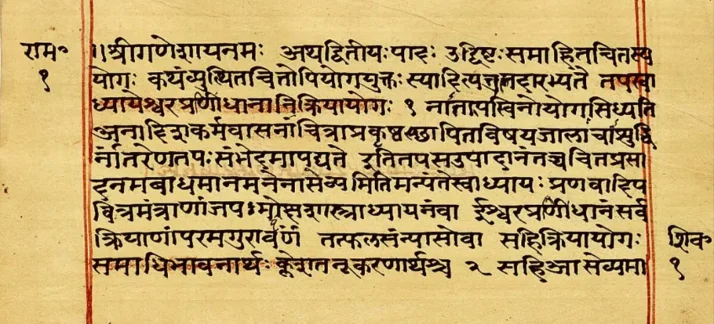 राम॰ ॥श्रीगणेशायनमः अथद्वितीयःपादः उद्दिष्टःसमाहितचित्तस्य
१ योगः कथंव्युत्थितचित्तोपियोगयुक्तःस्यादित्येतदारभ्यते तपस्वा
ध्यायेश्वरप्रणीधानानिक्रियायोगः १ नातापस्विनोयोगसिध्यति
अनादिक्लेशकर्मवासनाचित्राप्रकृष्टाछापितविषयजालाचाशुद्धि
र्नांतरेणतपःसंभेदमापद्यते इतितपसउपादानंतच्चचितप्रसा
दनमबाधमानमनेनासेव्यमितिमन्यंतेस्वाध्यायःप्रणवादिप
वित्रमंत्राणांजपःमोक्षशास्त्राध्यायनंवा ईश्वरप्रणीधानंसर्व
क्रियाणांपरमगुरावर्पणं तत्फलसंन्यासोवा सहिक्रियायोगः शिव॰
समाधिभावनार्थः क्लेशतनूकरणार्थश्च २ सहिआसेव्यमा १